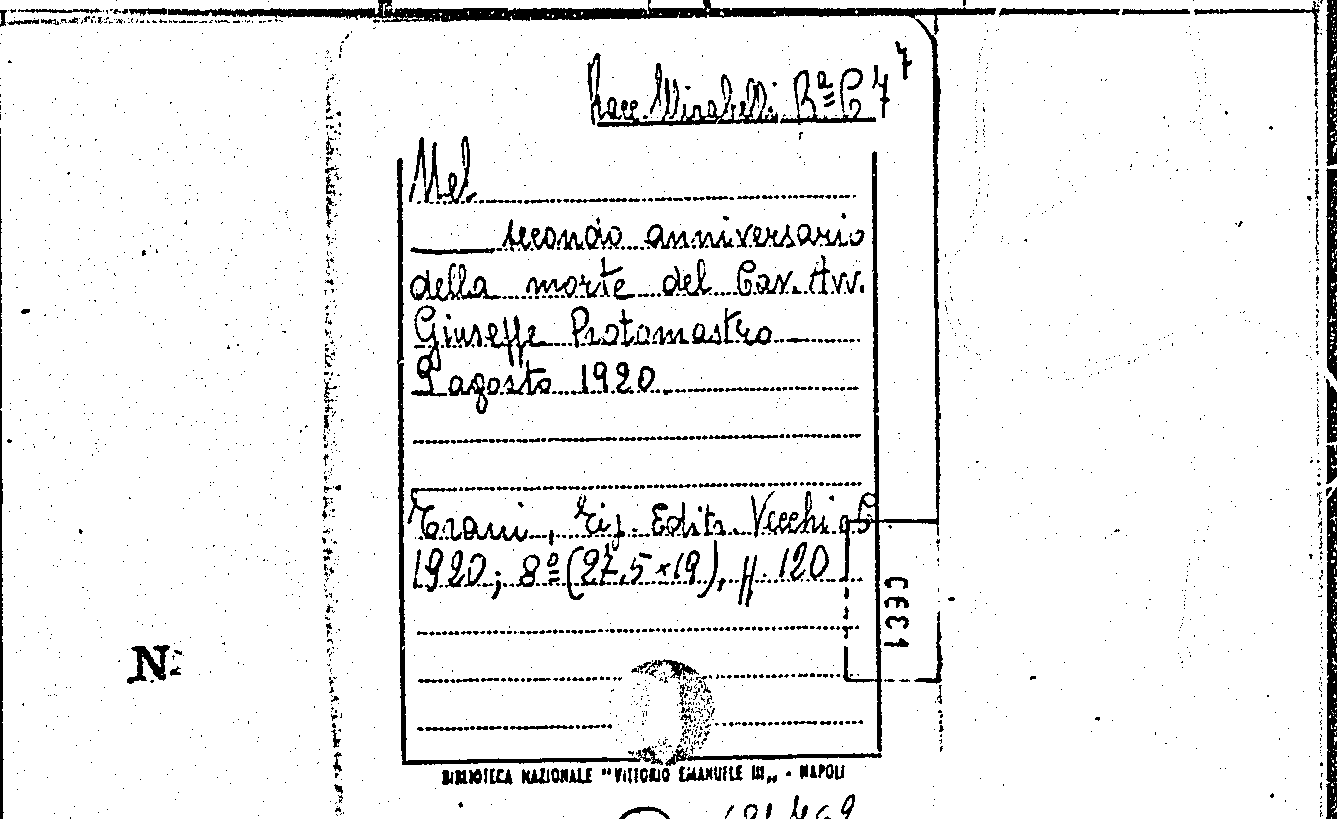 Racc. Mirabelli Bª C 4 7
Nel
secondo anniversario
della morte del Cav. Avv.
Giuseppe Protomastro
9 agosto 1920
Trani, Tip. Editr. Vecchi e C
1920; 8º (27,5×19), pp. 120
N
BIBLIOTECA NAZIONALE "VITTORIO EMANUELE III„ - NAPOLI